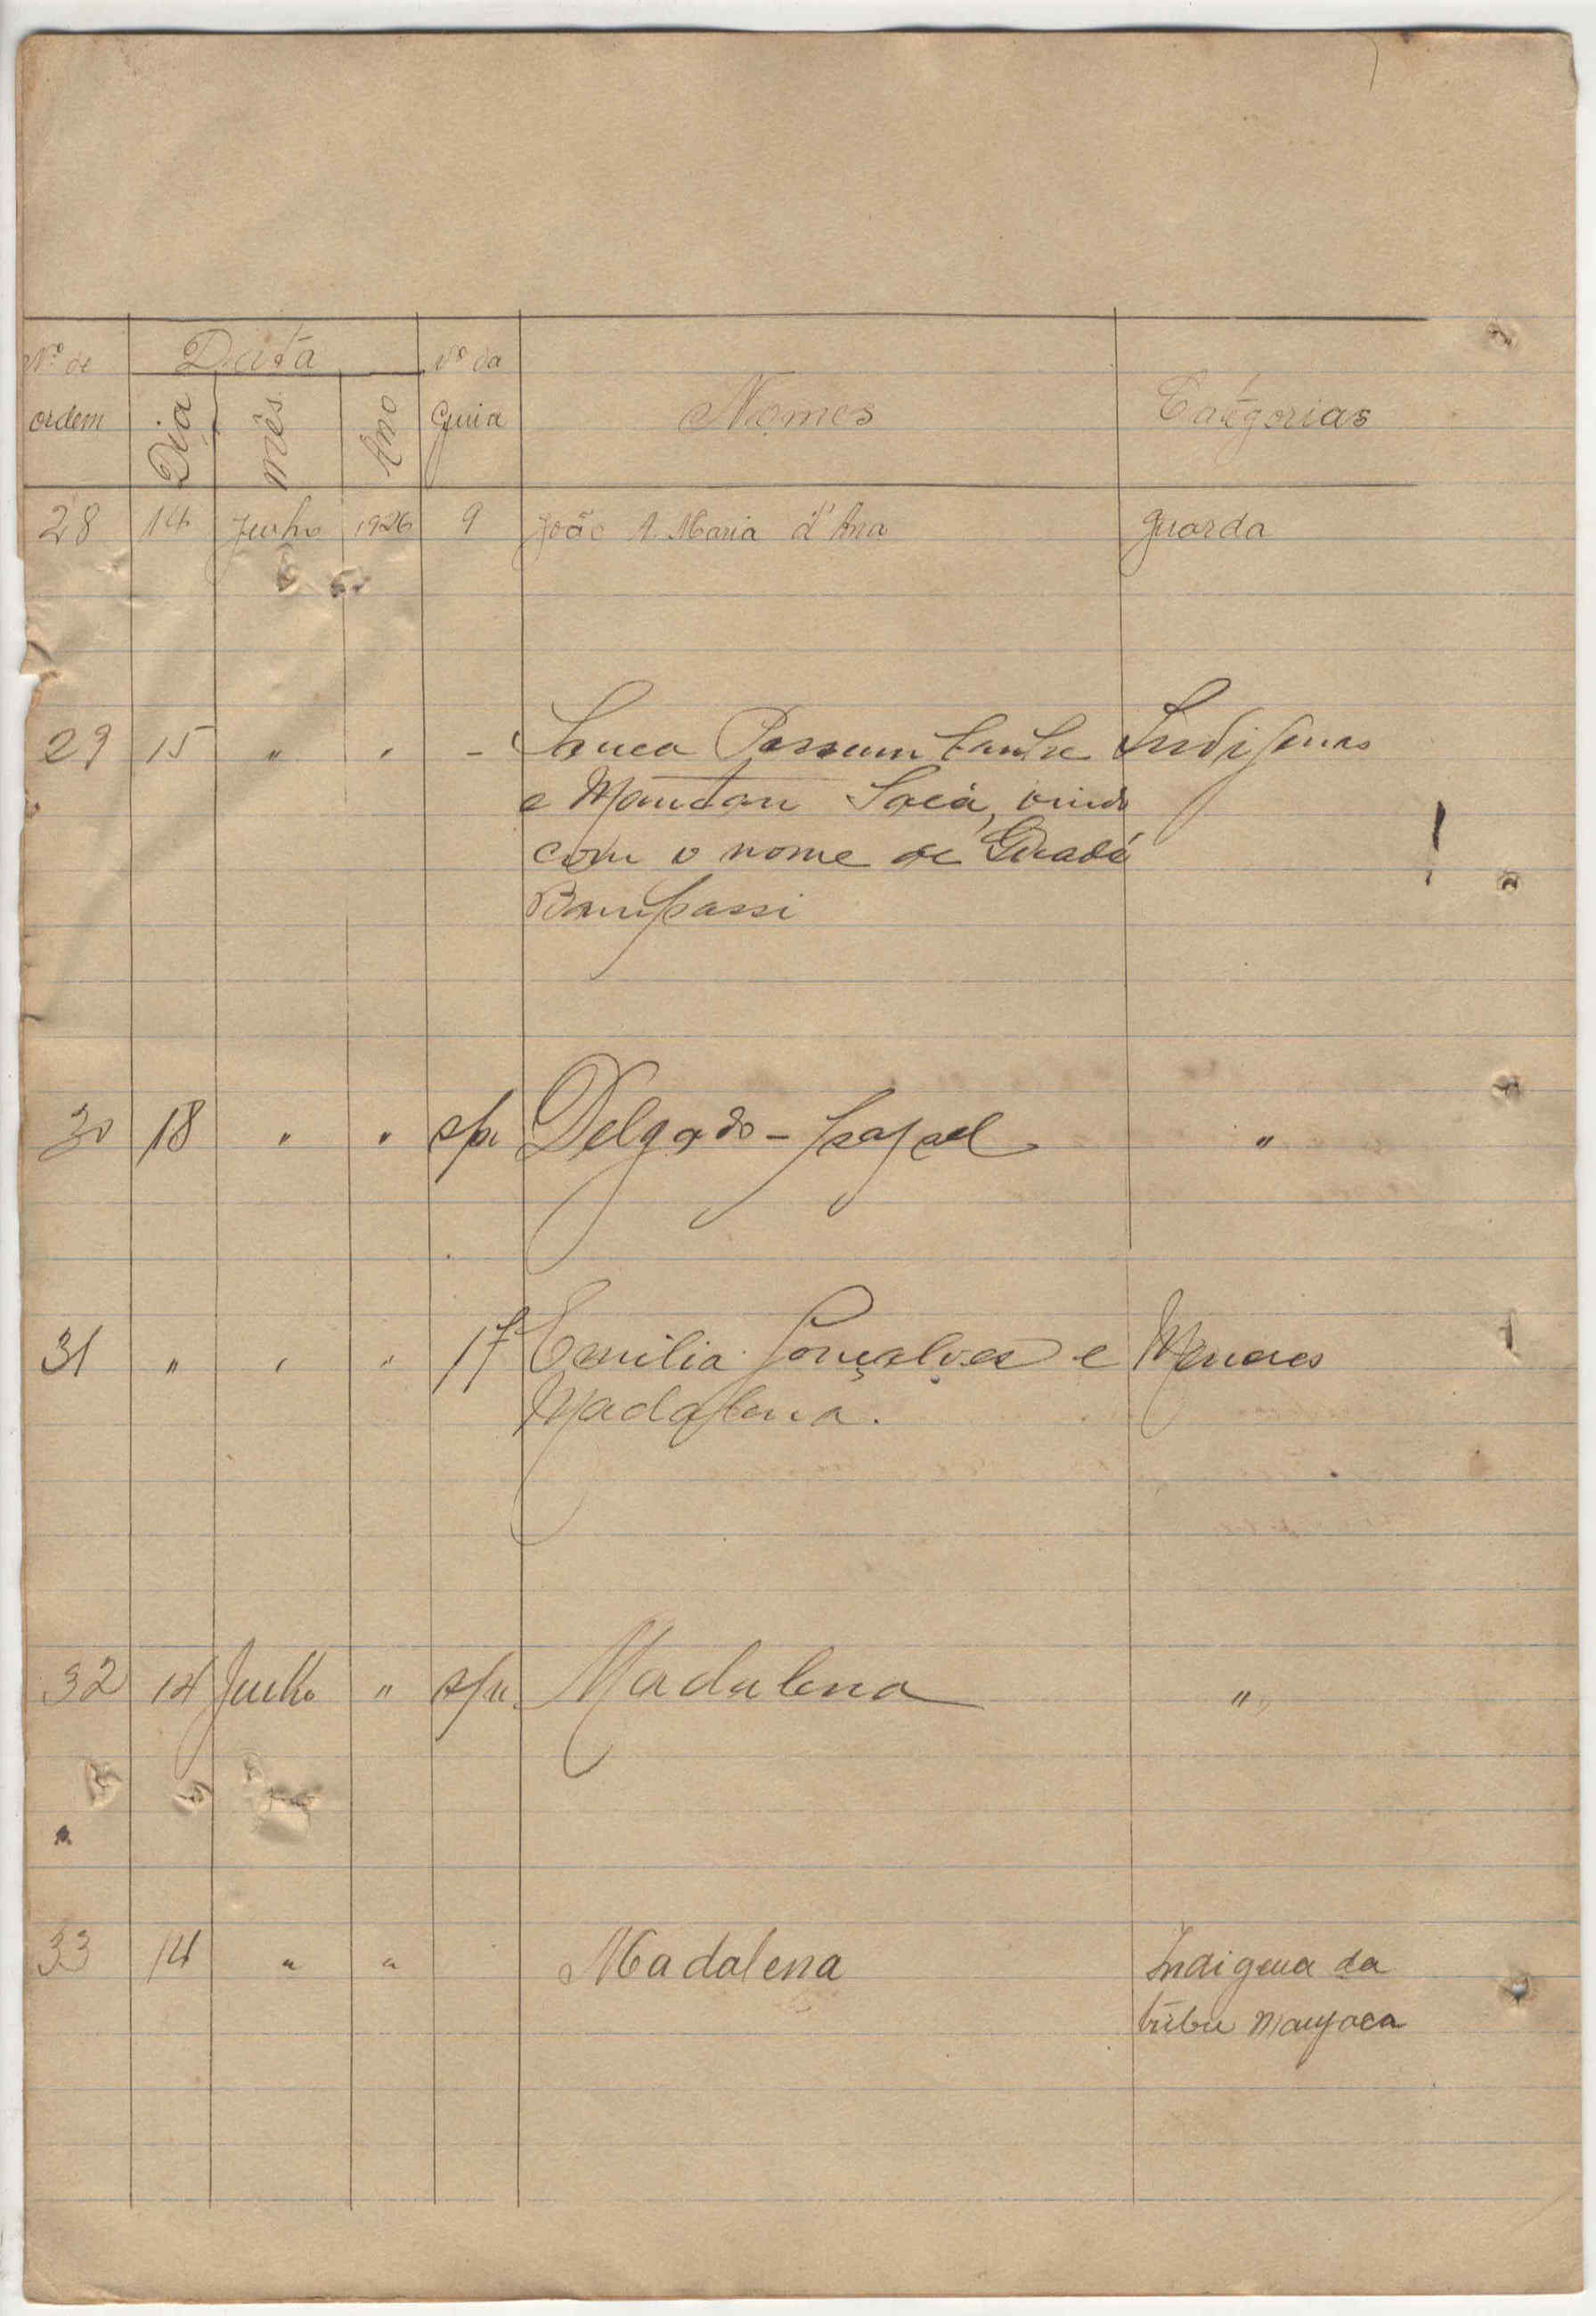 Nº de Data Nº da
ordem Dia mês Ano Guia Nomes Categorias
28 14 Junho 1926 9 João A. Maria d'Ana guarda
29 15 " " - Indigenas
e vindo
com o nome de
Bampassi
30 18 " " s/n Delgado - "
31 " " " 17 Emilia Gonçalves e Menores
Madalena.
32 14 Julho " s/n. Madalena "
33 14 " " Madalena Indigena da
tribu manjaca